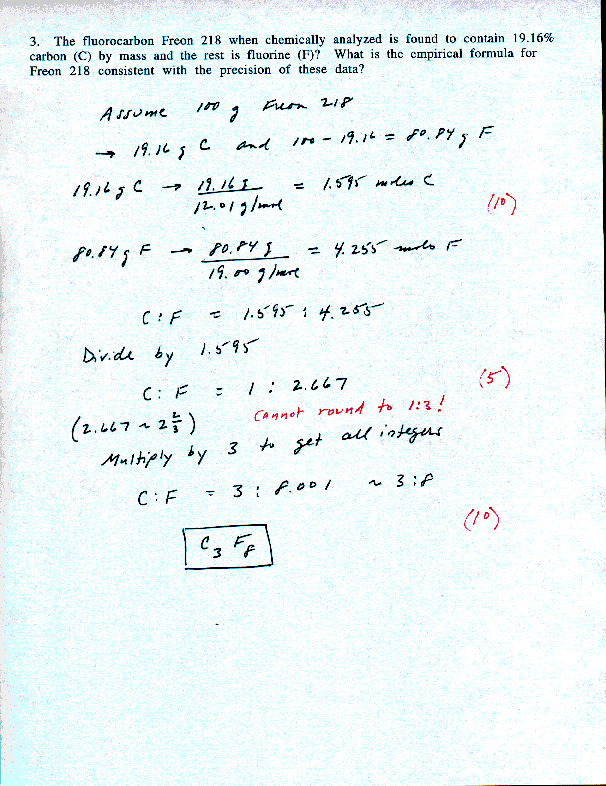 3. The fluorocarbon Freon 218 when chemically analyzed is found to contain 19.16%
carbon (C) by mass and the rest is fluorine (F)? What is the empirical formula for
Freon 218 consistent with the precision of these data?
Assume 100 g Freon 218
→ 19.16 g C and 100 - 19.16 = 80.84 g F
19.16 g C → 19.16 g / 12.01 g/mol = 1.595 moles C
(10)
80.84 g F → 80.84 g / 19.00 g/mol = 4.255 moles F
C : F = 1.595 : 4.255
Divide by 1.595
C : F = 1 : 2.667
(5)
(2.667 ~ 2 2/3)
Cannot round to 1:3!
Multiply by 3 to get all integers
C : F = 3 : 8.001 ~ 3:8
(10)
C3 F8